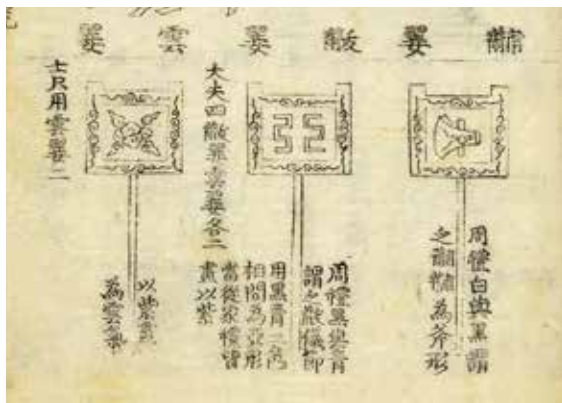 黼翣
周禮白與黑謂
之黼黼為斧形
黻翣
周禮黑與青
謂之黻儀節
用黑青二色
相間為亞形
當從家禮皆
畫以紫
大夫四黻翣雲翣各二
雲翣
以紫畫
為雲氣
士只用雲翣二